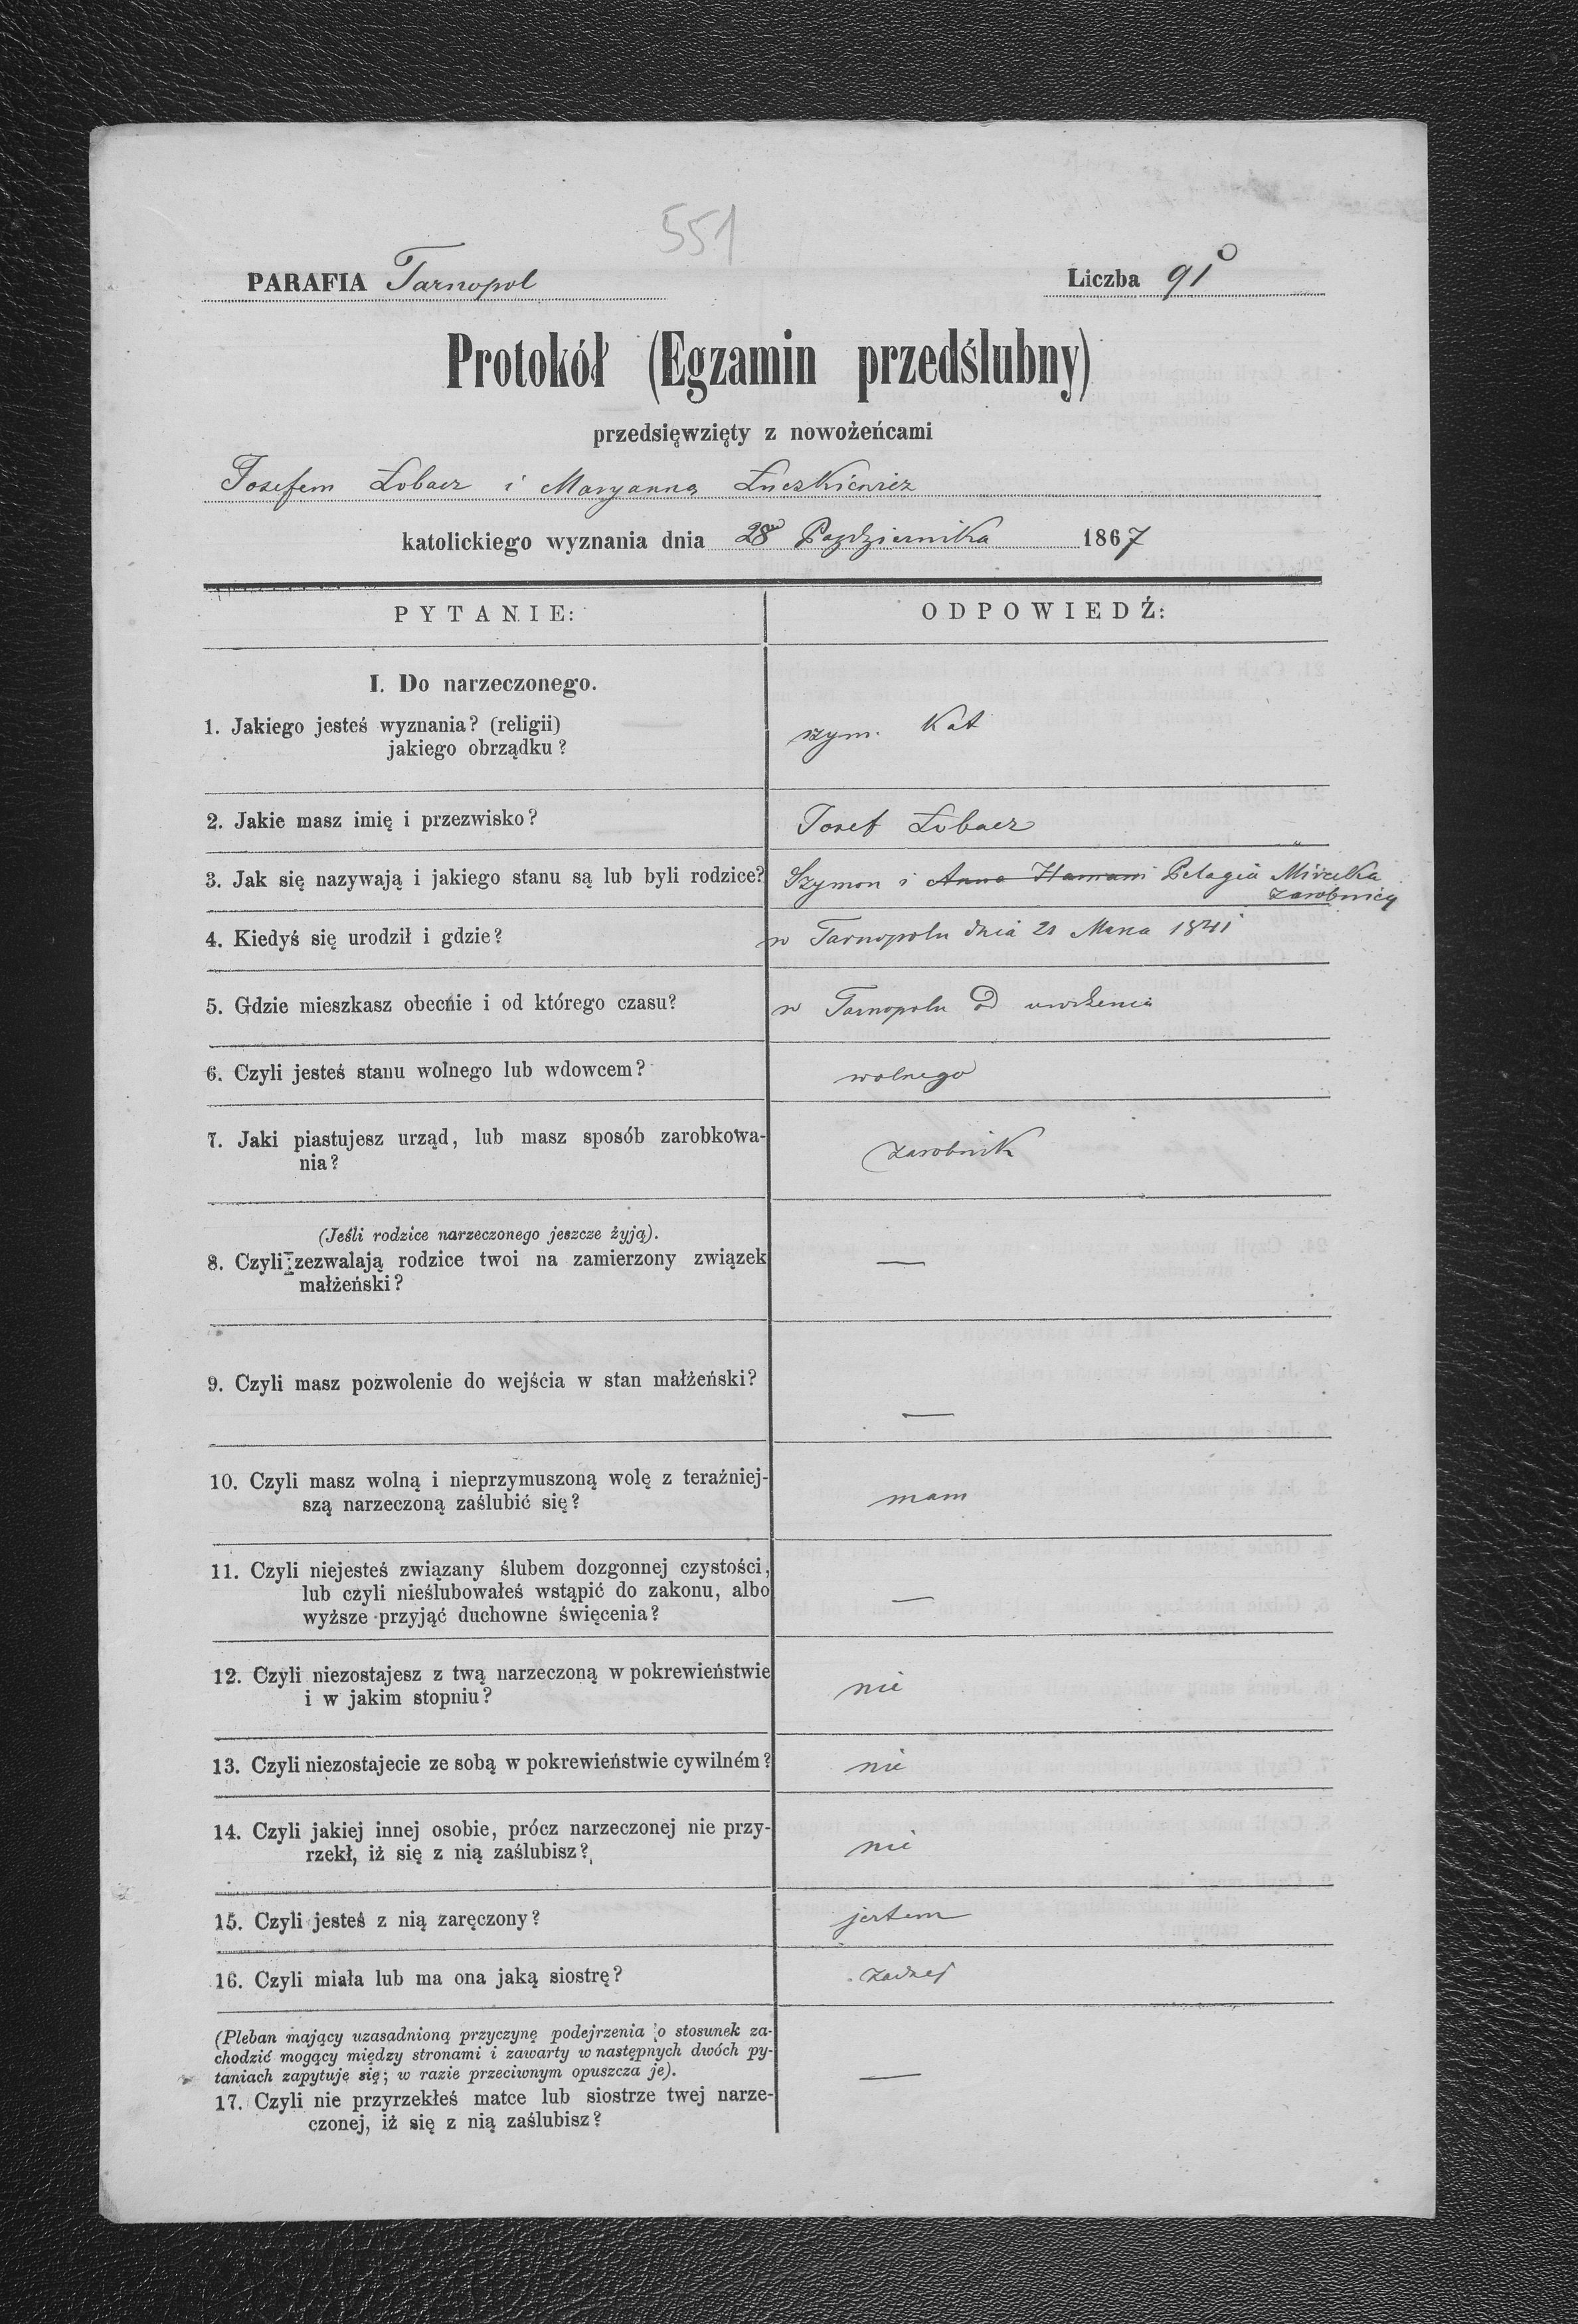 551
PARAFIA Tarnopol
Liczba 91
Protokół (Egzamin przedślubny)
przedsięwzięty z nowożeńcami
Josefem Łobacz i Maryanną Łuczkiewicz
katolickiego wyznania dnia 28 Pazdziernika 1867
PYTANIE:
ODPOWIEDŹ:
I. Do narzeczonego.
1. Jakiego jesteś wyznania? (religii)
jakiego obrządku?
rzym. Kat
2. Jakie masz imię i przezwisko?
Josef Łobacz
3. Jak się nazywają i jakiego stanu są lub byli rodzice?
Szymon i Anna Pelagia
zarobnicy
4. Kiedyś się urodził i gdzie?
w Tarnopolu dnia 21 Marca 1841
5. Gdzie mieszkasz obecnie i od którego czasu?
w Tarnopolu od urodzenia
6. Czyli jesteś stanu wolnego lub wdowcem?
wolnego
7. Jaki piastujesz urząd, lub masz sposób zarobkowa-
nia?
zarobnik
(Jeśli rodzice narzeczonego jeszcze żyją).
8. Czyli zezwalają rodzice twoi na zamierzony związek
małżeński?
—
9. Czyli masz pozwolenie do wejścia w stan małżeński?
—
10. Czyli masz wolną i nieprzymuszoną wolę z teraźniej-
szą narzeczoną zaślubić się?
mam
11. Czyli niejesteś związany ślubem dozgonnej czystości,
lub czyli nieślubowałeś wstąpić do zakonu, albo
wyższe przyjąć duchowne święcenia?
—
12. Czyli niezostajesz z twą narzeczoną w pokrewieństwie
i w jakim stopniu?
nie
13. Czyli niezostajecie ze sobą w pokrewieństwie cywilném?
nie
14. Czyli jakiej innej osobie, prócz narzeczonej nie przy-
rzekł, iż się z nią zaślubisz?
nie
15. Czyli jesteś z nią zaręczony?
jestem
16. Czyli miała lub ma ona jaką siostrę?
żadnej
(Pleban mający uzasadnioną przyczynę podejrzenia o stosunek za-
chodzić mogący między stronami i zawarty w następnych dwóch py-
taniach zapytuję się; w razie przeciwnym opuszcza je).
17. Czyli nie przyrzekłeś matce lub siostrze twej narze-
czonej, iż się z nią zaślubisz?
—